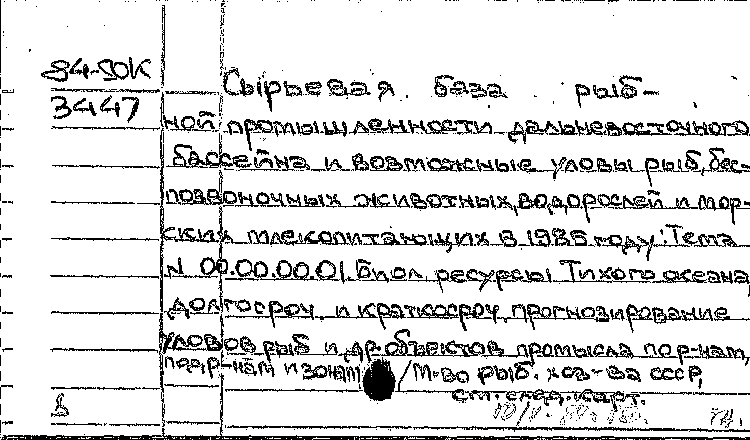 84-50К
3447
Сырьевая база рыб-
ной промышленности дальневосточного
бассейна и возможные уловы рыб, бес-
позвоночных животных, водорослей и мор-
ских млекопитающих в 1985 году: Тема
N 00.00.00.01. Биол. ресурсы Тихого океана,
долгосроч. и краткосроч. прогнозирование
уловов рыб и др. объектов промысла по р-нам,
подр-нам и зонам / М-во рыб. хоз-ва СССР,
см. след. карт.